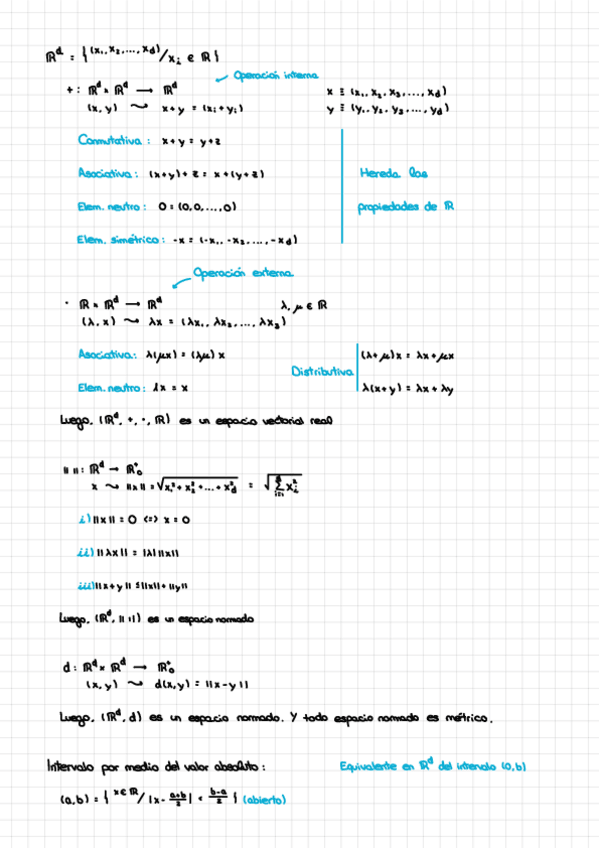 ℝᵈ = { (x₁, x₂, ..., x_d) / x_i ∈ ℝ }
Operación interna
+ : ℝᵈ × ℝᵈ → ℝᵈ
x ≡ (x₁, x₂, x₃, ..., x_d)
(x, y) ⇝ x+y = (x_i + y_i)
y ≡ (y₁, y₂, y₃, ..., y_d)
Conmutativa : x+y = y+z
Asociativa : (x+y)+z = x+(y+z)
Hereda las
Elem. neutro : 0 = (0,0,...,0)
propiedades de ℝ
Elem. simétrico : -x = (-x₁, -x₂, ..., -x_d)
Operación externa
· ℝ × ℝᵈ → ℝᵈ
λ, μ ∈ ℝ
(λ, x) ⇝ λx = (λx₁, λx₂, ..., λx₃)
Asociativa : λ(μx) = (λμ)x
(λ+μ)x = λx+μx
Distributiva
Elem. neutro : 1x = x
λ(x+y) = λx + λy
Luego, (ℝᵈ, +, ·, ℝ) es un espacio vectorial real
‖ ‖ : ℝᵈ → ℝ⁺₀
x ⇝ ‖x‖ = √(x₁² + x₂² + ... + x_d²) = √(∑_{i=1}^{d} x_i²)
i) ‖x‖ = 0 <=> x = 0
ii) ‖λx‖ = |λ|‖x‖
iii) ‖x+y‖ ≤ ‖x‖+‖y‖
Luego, (ℝᵈ, ‖ ‖) es un espacio normado
d : ℝᵈ × ℝᵈ → ℝ⁺₀
(x, y) ⇝ d(x,y) = ‖x-y‖
Luego, (ℝᵈ, d) es un espacio normado. Y todo espacio normado es métrico.
Intervalo por medio del valor absoluto :
Equivalente en ℝᵈ del intervalo (a,b)
(a,b) = { x∈ℝ / |x - (a+b)/2| < (b-a)/2 } (abierto)